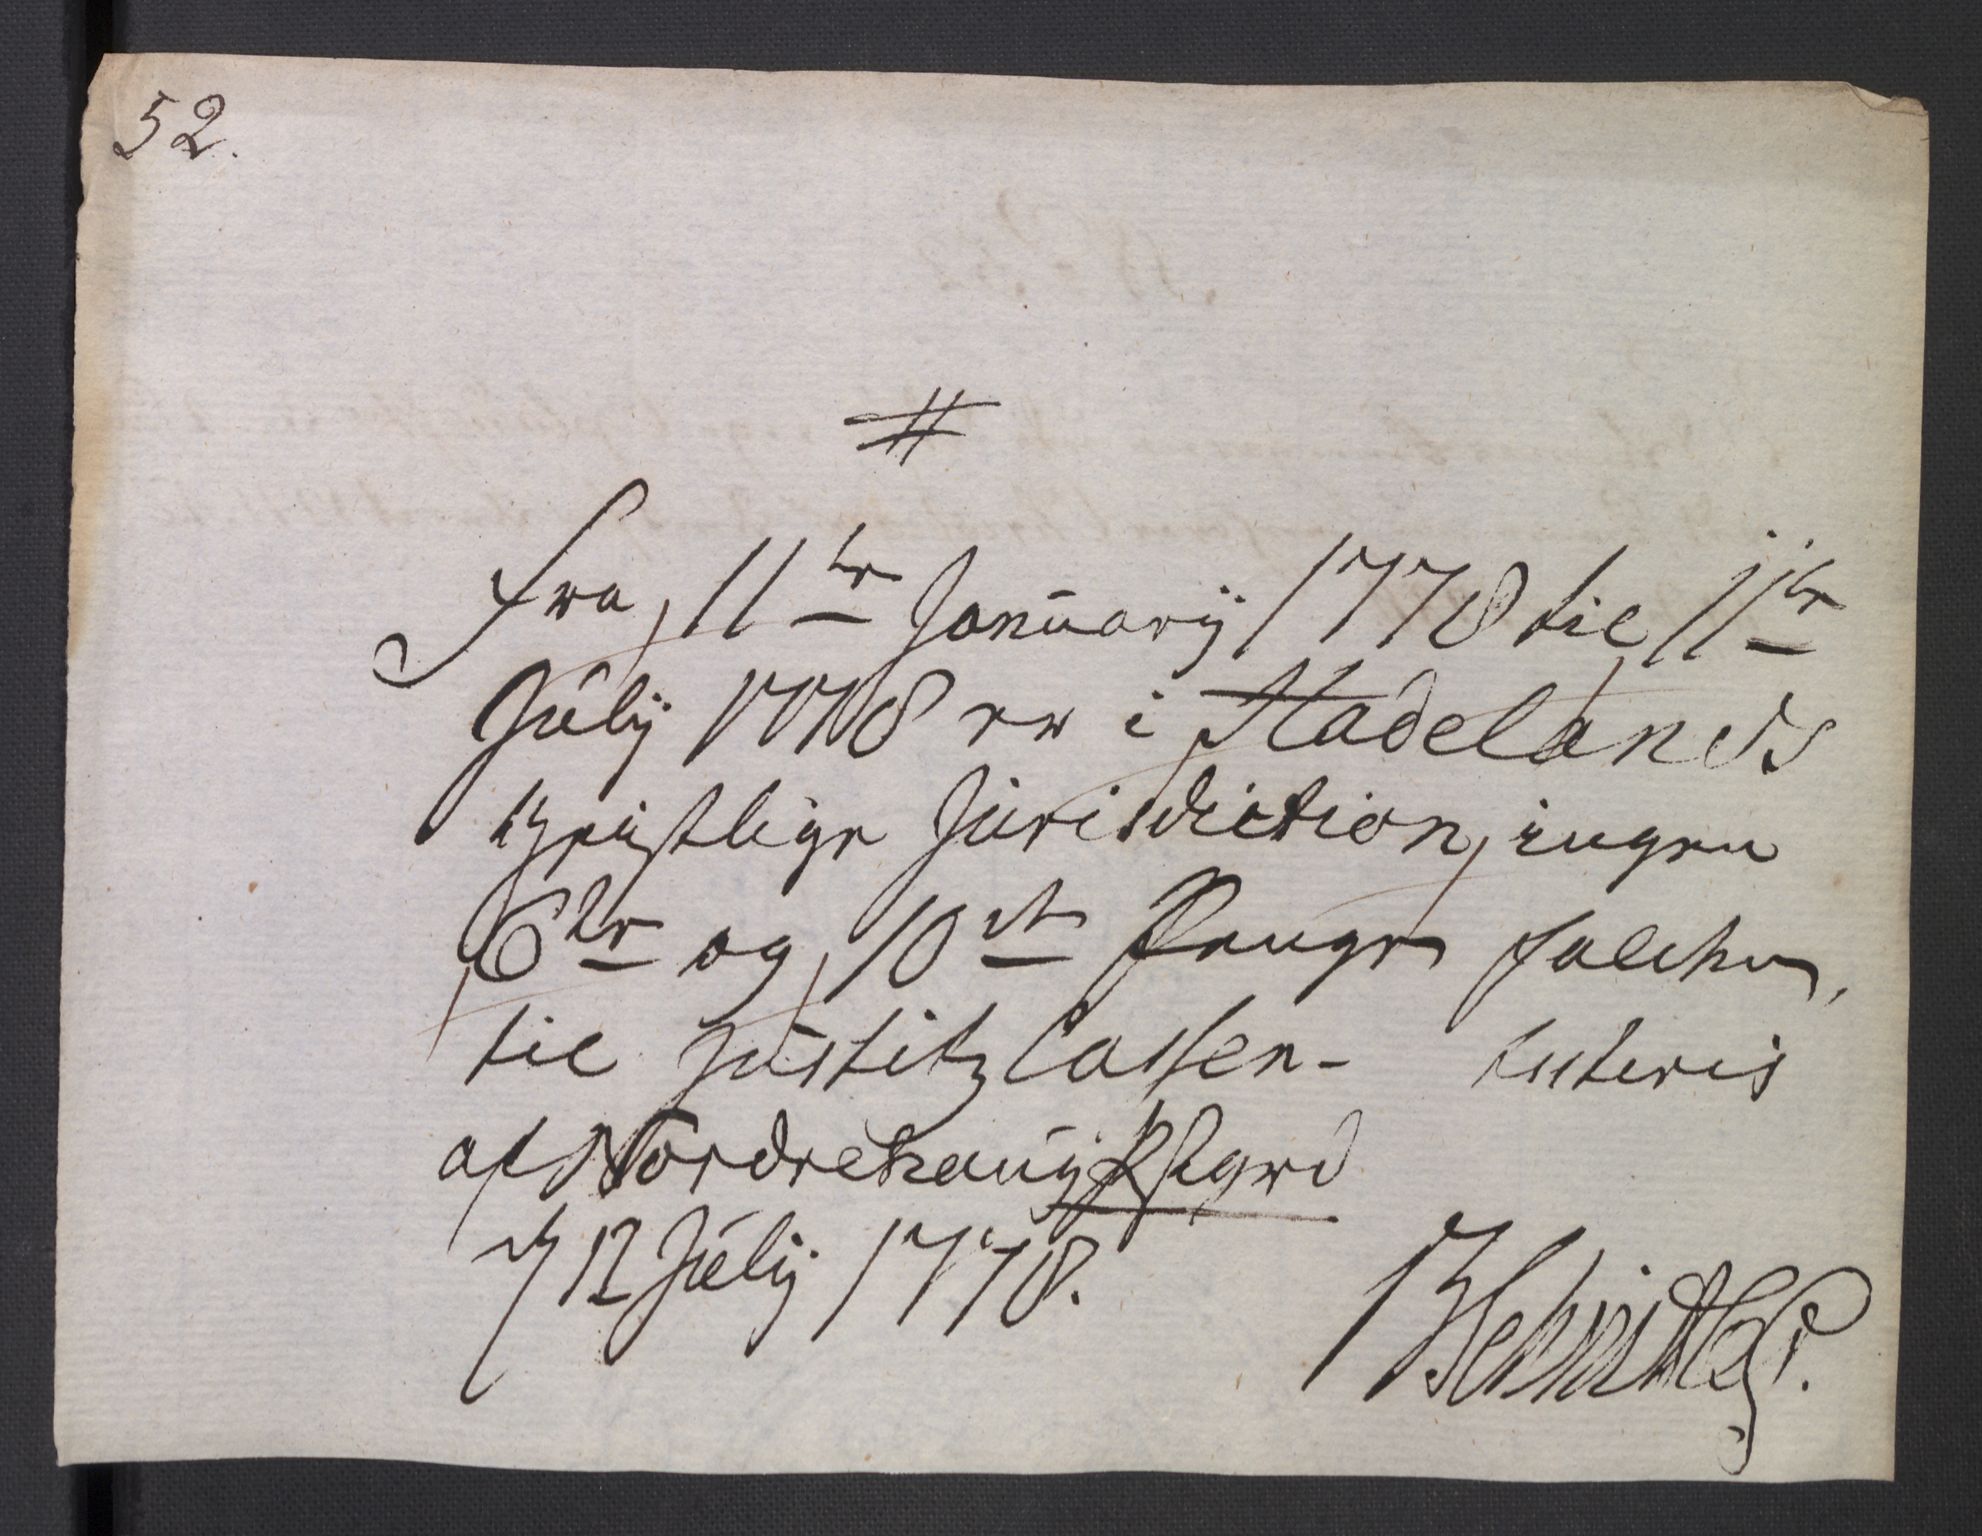 52.
#
Fra 11te Januarÿ 1778 til 11te
Julÿ 1778 er i Hadelands
Geistlige Jurisdiction, ingen
6te og 10de Penge falden,
til Justitz Cassen- testeris
af Nordrehaug Prgrd
d 12 Julÿ 1778.